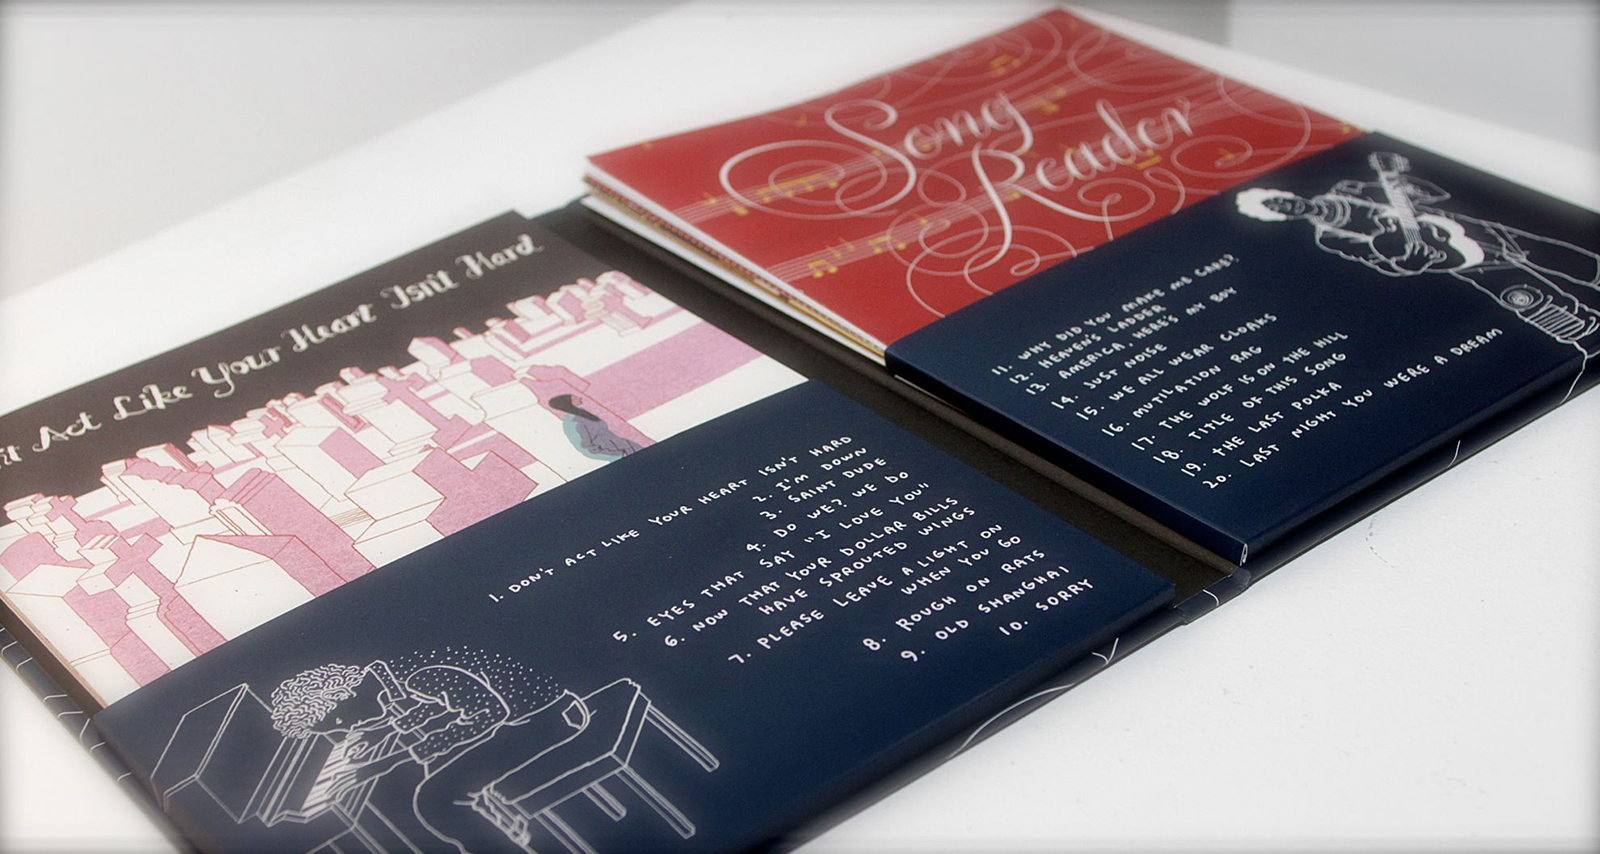 't Act Like Your Heart Isn't Hard
Song
Reader
1. DON'T ACT LIKE YOUR HEART ISN'T HARD
2. I'M DOWN
3. SAINT DUDE
4. DO WE? WE DO
5. EYES THAT SAY "I LOVE YOU"
6. NOW THAT YOUR DOLLAR BILLS
HAVE SPROUTED WINGS
7. PLEASE LEAVE A LIGHT ON
WHEN YOU GO
8. ROUGH ON RATS
9. OLD SHANGHAI
10. SORRY
11. WHY DID YOU MAKE ME CARE?
12. HEAVEN'S LADDER
13. AMERICA, HERE'S MY BOY
14. JUST NOISE
15. WE ALL WEAR CLOAKS
16. MUTILATION RAG
17. THE WOLF IS ON THE HILL
18. TITLE OF THIS SONG
19. THE LAST POLKA
20. LAST NIGHT YOU WERE A DREAM